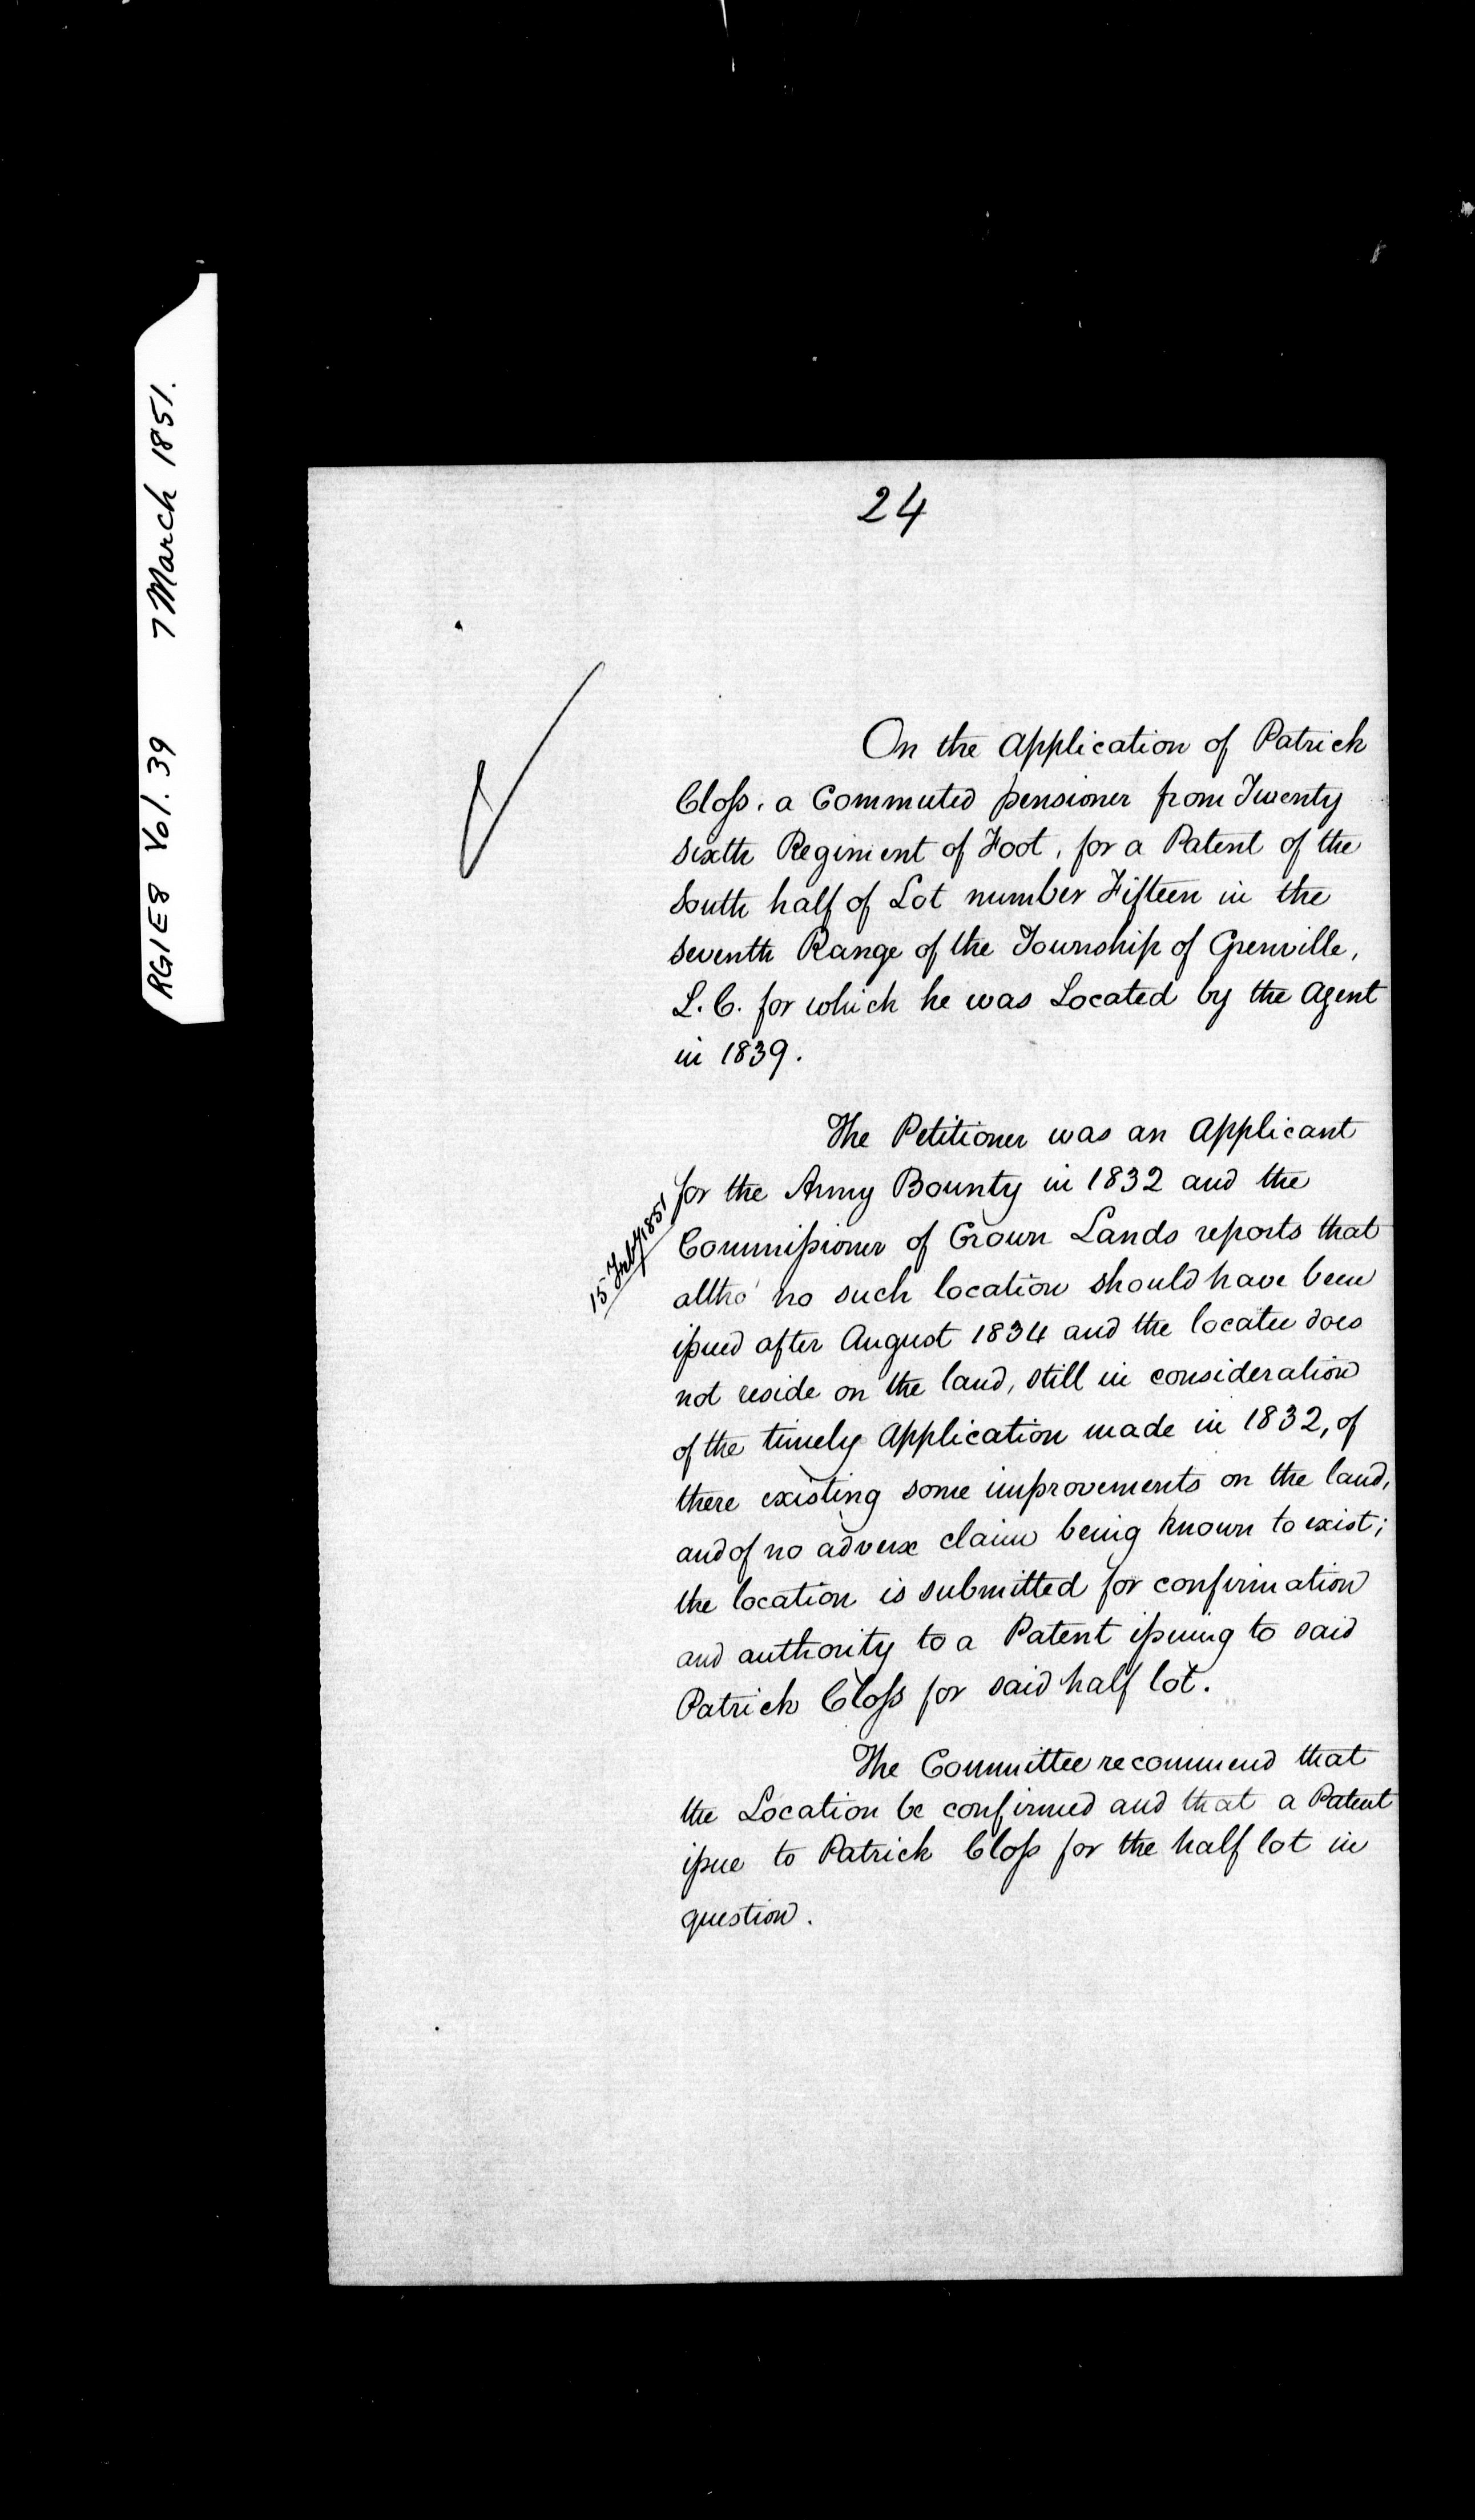 RG1E8 Vol. 39 7 March 1851.
24
On the Application of Patrick
Closs, a Commuted pensioner from Twenty
sixth Regiment of Foot, for a Patent of the
South half of Lot number Fifteen in the
seventh Range of the Township of Grenville,
L. C. for which he was Located by the Agent
in 1839.
The Petitioner was an Applicant
for the Army Bounty in 1832 and the
15 Feby 1851
Commissioner of Crown Lands reports that
altho' no such location should have been
issued after August 1834 and the locatee does
not reside on the land, still in consideration
of the timely Application made in 1832, of
there existing some improvements on the land,
and of no adverse claim being known to exist;
the location is submitted for confirmation
and authority to a Patent issuing to said
Patrick Closs for said half lot.
The Committee recommend that
the Location be confirmed and that a Patent
issue to Patrick Closs for the half lot in
question.